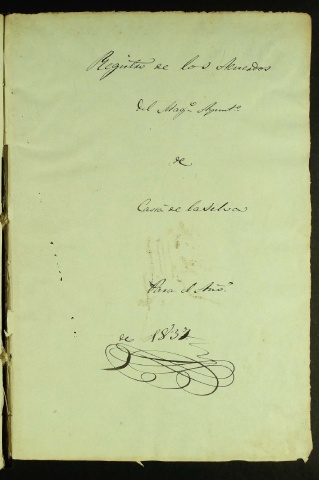 Registro de los Acuerdos
del Magco Ayunto
de
Cassá de la Selva
Para el Año
de 1837